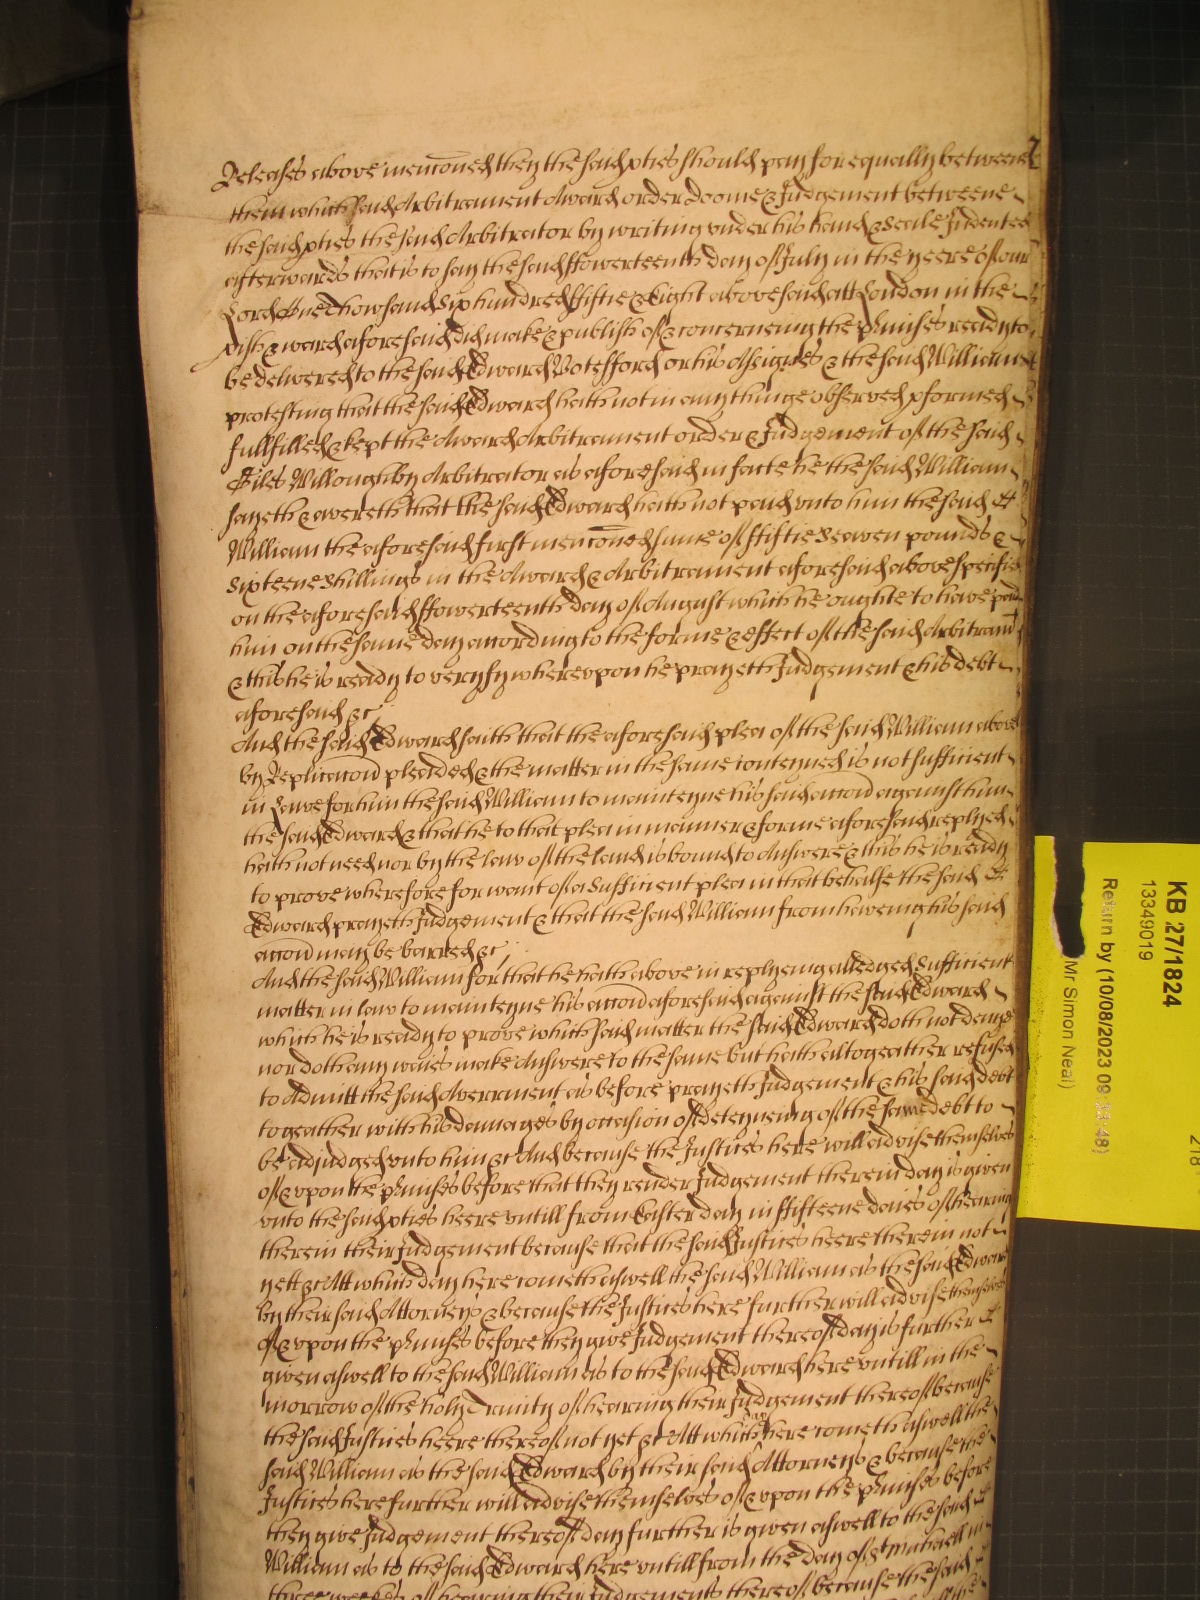 Releases above menc̄oned then the said pties should pay for equally betweene
them which said Arbitrament Award order doome & Judgement betweene
the said pties the said Arbitrator by writing under his hand & Seale Indented
afterwards that is to say the said ffowerteenth day of July in the yeere of our
Lord One Thowsand Six hundred ffiftie & Eight abovesaid att London in the
pish & ward aforesaid did make & publish of & concerneing the pmises ready to
be delivered to the said Edward Botefford or his Assignes & the said William
protesting that the said Edward hath not in any thinge observed pformed
fullfilled & kept the Award Arbitrament order & Judgement of the said
Giles Willoughby Arbitrator as aforesaid in facte he the said William
sayeth & avereth that the said Edward hath not paid unto him the said
William the aforesaid first menc̄oned sume of ffiftie Seaven pounds &
Sixteene Shillings in the Award & Arbitrament aforesaid above specified
on the aforesaid ffowerteenth day of August which he oughte to have paid
him on the same day according to the forme & effect of the said Arbitramt
& this he is ready to veryfy whereupon he prayeth Judgement & his debt
aforesaid &c
And the said Edward saith that the aforesaid plea of the said William above
by Replicac̄on pleaded & the matter in the same conteyned is not sufficient
in Lawe for him the said William to mainteyne his said acc̄on against him
the said Edward & that he to that plea in manner & forme aforesaid replyed
hath not need nor by the law of the land is bound to Answere & this he is ready
to prove wherefore for want of a Sufficient plea in that behalfe the said
Edward prayeth Judgement & that the said William from haveing his said
acc̄on may be barred &c
And the said William for that he hath above in replyeing alledged Sufficient
matter in law to mainteyne his acc̄on aforesaid against the said Edward
which he is ready to prove which said matter the said Edward doth not denye
nor doth any waies make Answere to the same but hath altogeather refused
to Admitt the said Averrment as before prayeth Judgement & his said debt
togeather with his damages by occasion of deteyneing of the same debt to
be adjudged unto him &c And because the Justices here will advise themselves
of & upon the pmises before that they render Judgement therein day is given
unto the said pties heere untill from Easter day in ffifteene daies of heareing
therein their Judgement because that the said Justices heere therein not
yett &c Att which day here cometh aswell the said William as the said Edward
by their said Attorneys & because the Justices here further will advise themselves
of & upon the pmises before they give Judgement thereof day is further
given aswell to the said William as to the said Edward here untill in the
morrow of the holy Trinity of hearing their Judgement thereof because
the said Justices heere thereof not yet &c Att which day here cometh aswell the
said William as the said Edward by their said Attorneys & because the
Justices here further will advise themselves of & upon the pmises before
they give Judgement thereof day further is given aswell to the said
William as to the said Edward here untill from the day of St Michaell in
three weekes of heareing their Judgements thereof because the said
KB 27/1824
13349019
Return by (10/08/2023
Mr Simon Neal)